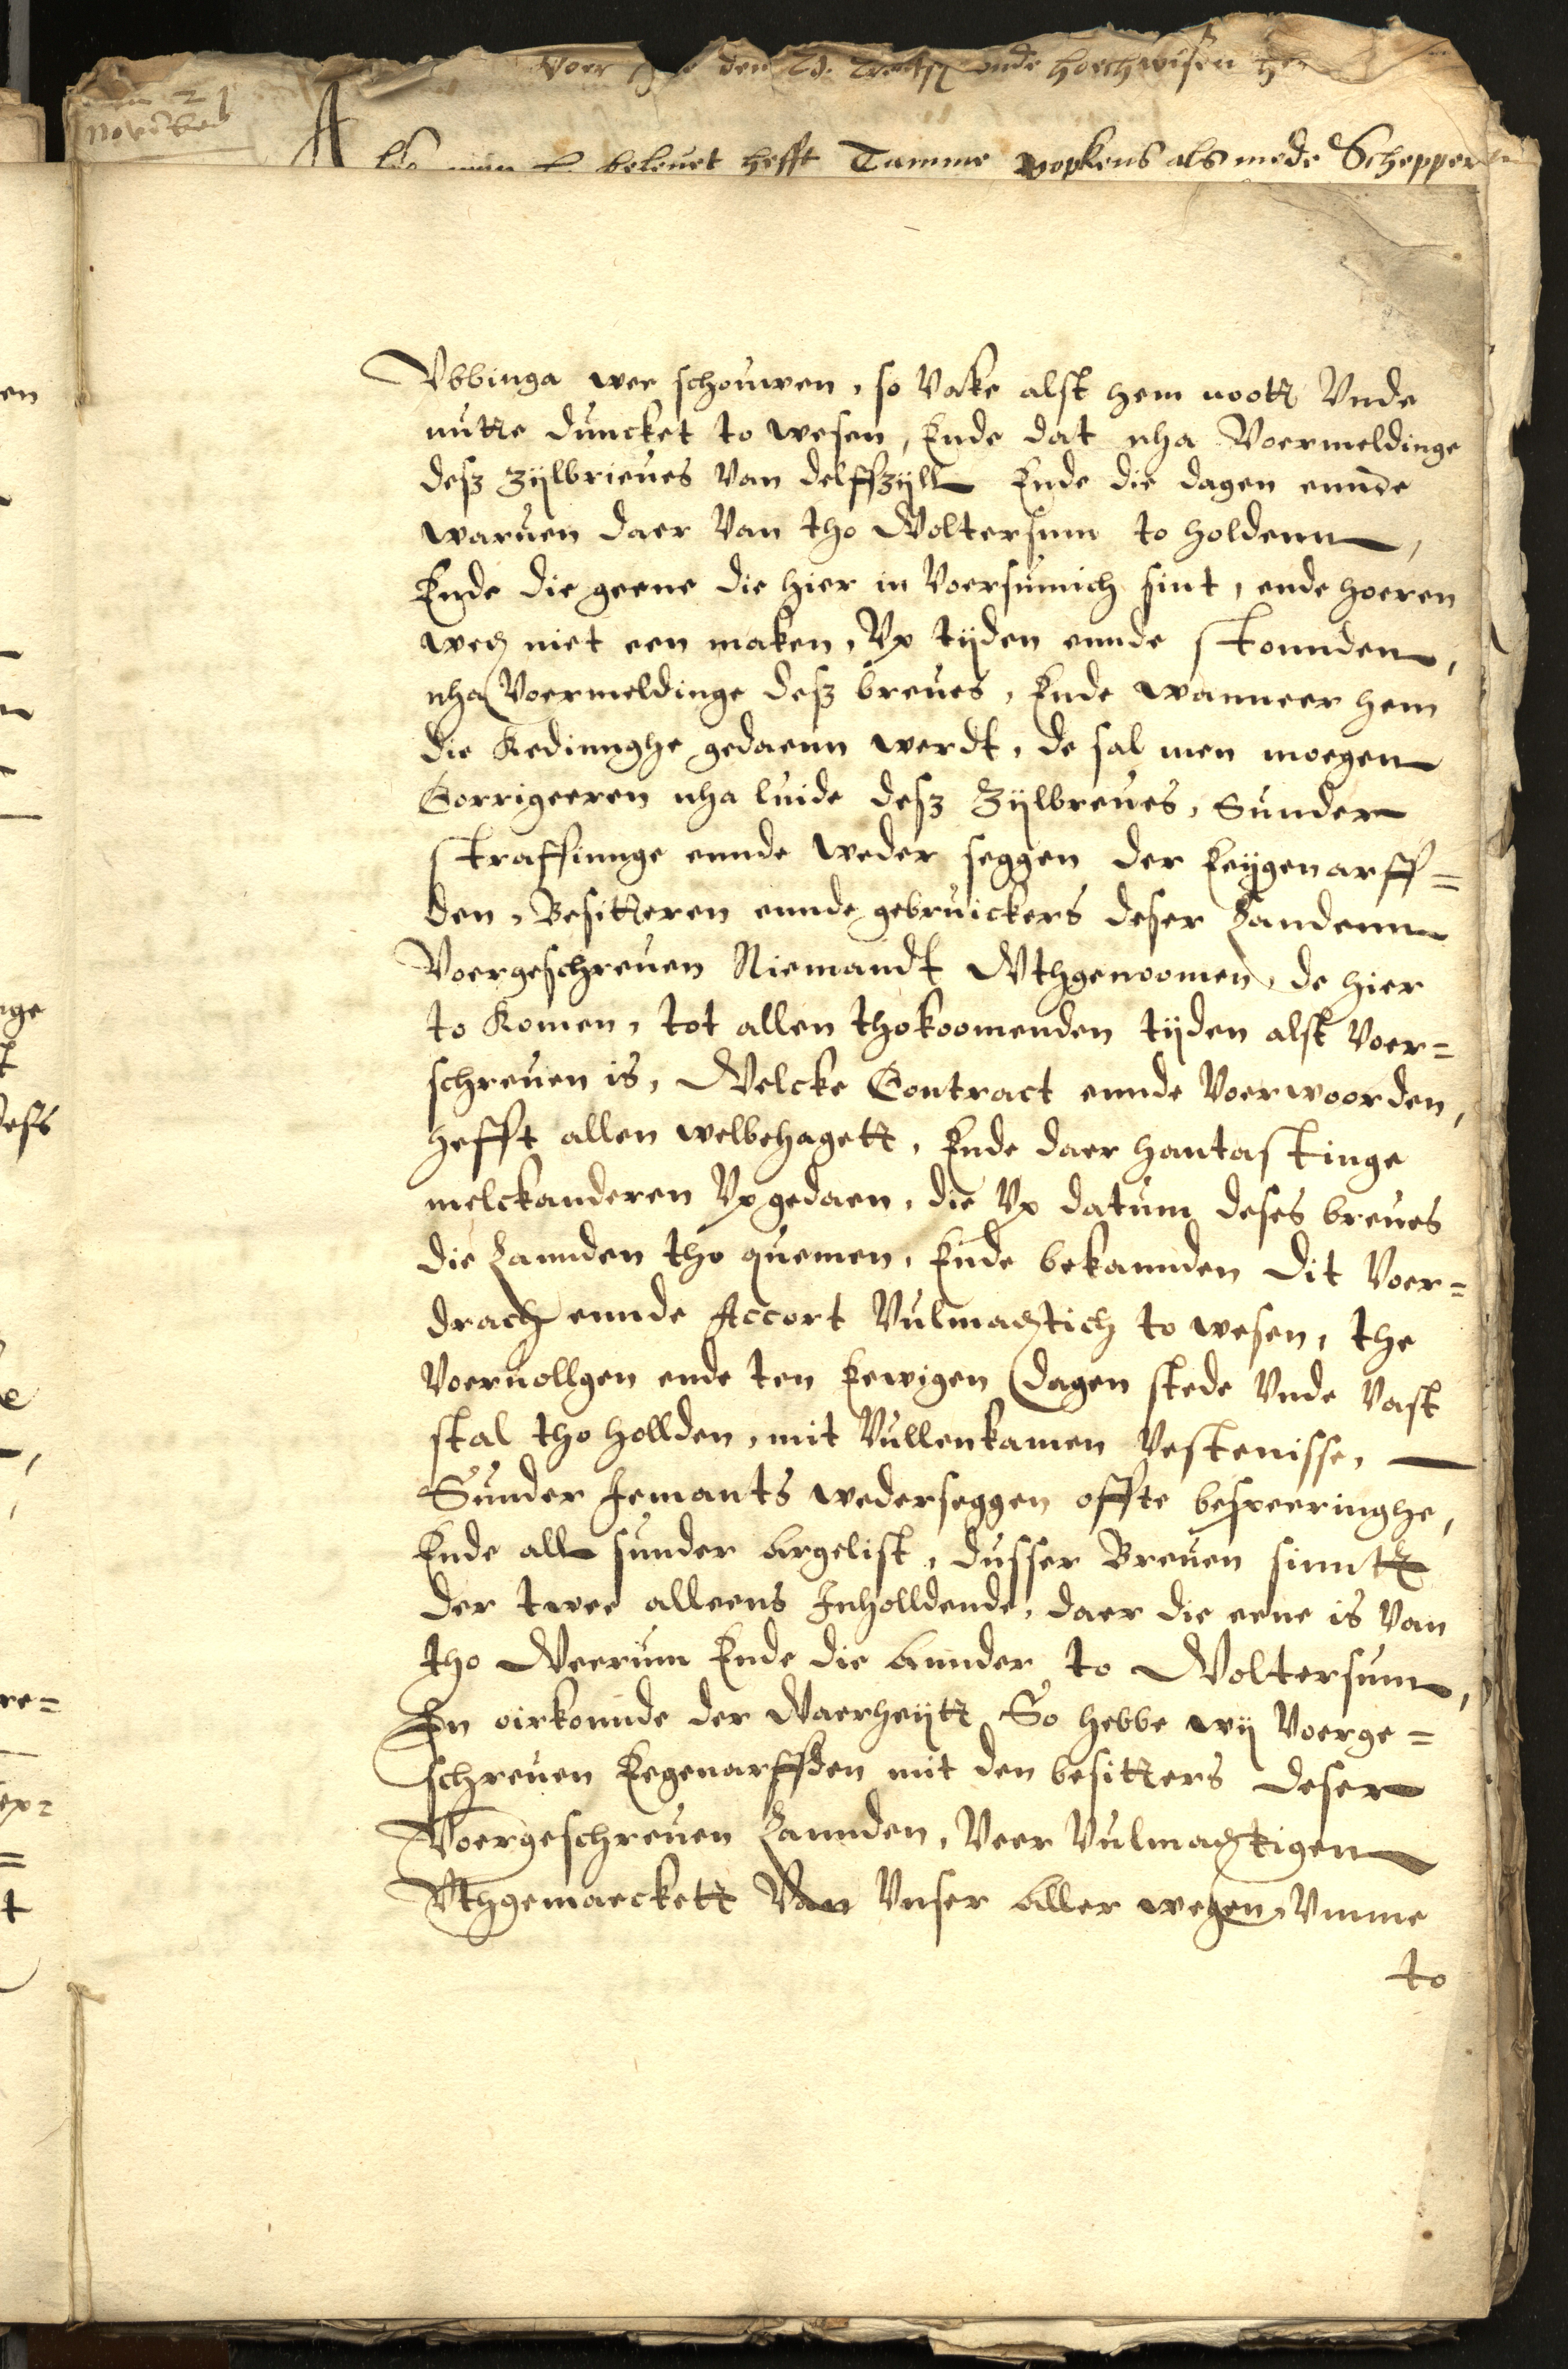 Voer den Ed. ende hoechwisen
Novemb
beleuet hefft Tamme popkens als mede Schepper
Vbbinga wee schouwen, so Vake alst hem nott Vnde
nutte duncket to wesen, Ende dat nha Voermeldinge
desz zijlbrieues Van delffzijll Ende die dagen ennde
waruen daer Van tho Woltersum to holdenn,
Ende die geene die hier in Voersumich sint, ende hoeren
weg niet een maken, Vp tijden ennde stonnden,
nha Voermeldinge desz breues, Ende wanneer hem
die Kedinnghe gedaenn werdt, de sal men moegen
Corrigeeren nha luide desz Zijlbreues, Sunder
straffinnge ennde weder seggen der Eeijgenarff=
den, Besitteren ennde gebruickers deser Landenn
Voergeschreuen Niemandt Wthgenoomen, de hier
to Komen, tot allen thokoomenden tijden alst Voer=
schreuen is, Welcke Contract ennde Voerwoorden,
hefft allen welbehagett, Ende daer hantastinge
melckanderen Vpgedaen, die Vp datum deses breues
die Lannden tho quemen, Ende bekannden dit Voer=
drach ennde Accort Vulmachtich to wesen, the
Voernollgen ende ten Eewigen dagen stede Vnde Vast
stal tho hollden, mit Vullenkamen Vestenisse,
Sunder Jemants wederseggen offte besperinghe,
Ende all sunder Argelist, dusser Breuen sinntt
der twee alleens Inholldende, daer die eene is Van
tho Weerum Ende die Annder to Woltersum,
In oirkonnde der Waerheijtt So hebbe wij Voerge=
schreuen Eegenarffden mit den besitters deser
Voergeschreuen Lannden, Veer Vulmachtigen
Vthgemaeckett Van Vnser Aller wegen, Vmme
to